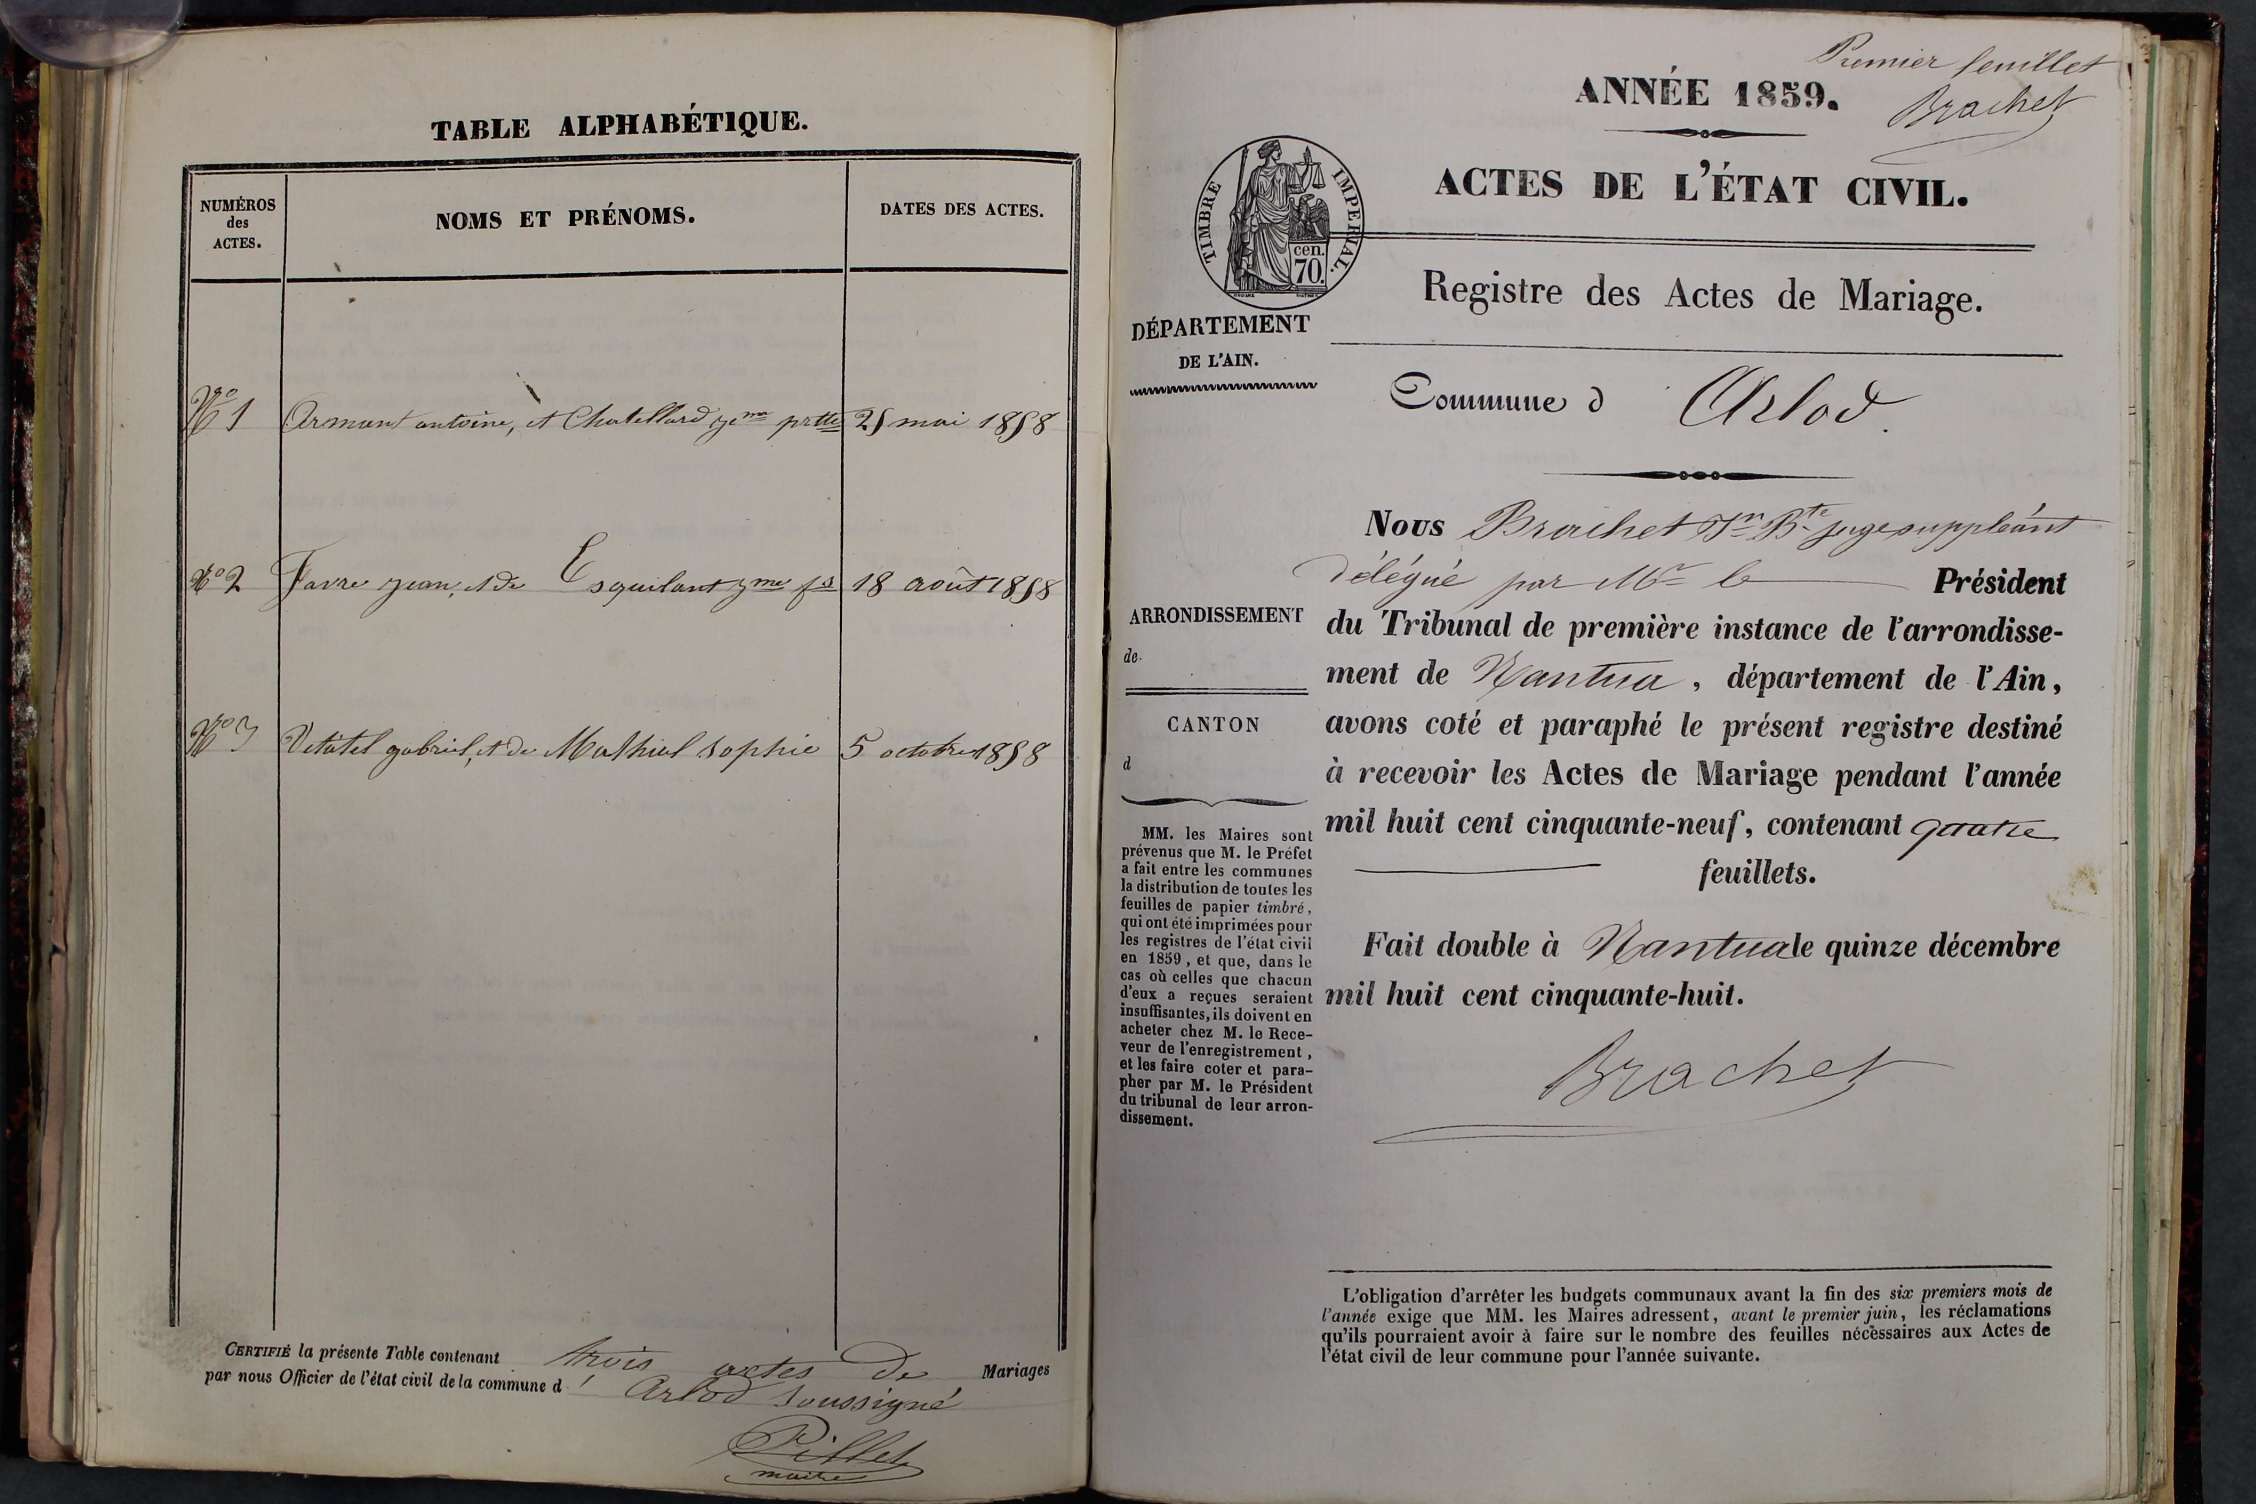 TABLE ALPHABÉTIQUE.
NUMÉROS
des
ACTES.
NOMS ET PRÉNOMS.
DATES DES ACTES.
No 1 Armant antoine, et Chatellard prtte 25 mai 1858
No 2 Favre jean, et de Esquilant fs 18 août 1858
No 3 gabriel, et de Mathiel Sophie 5 octobre 1858
CERTIFIÉ la présente Table contenant trois actes de Mariages
par nous Officier de l'état civil de la commune d' Arlod soussigné
Pillet
maire
Premier feuillet
Brachet
ANNÉE 1859.
ACTES DE L'ÉTAT CIVIL.
TIMBRE IMPERIAL.
cen.
70.
Registre des Actes de Mariage.
DÉPARTEMENT
DE L'AIN.
Commune d Arlod.
Nous Brachet Jn Bte juge suppléant
délégué par Mr le Président
du Tribunal de première instance de l'arrondisse-
ment de Nantua, département de l'Ain,
avons coté et paraphé le présent registre destiné
à recevoir les Actes de Mariage pendant l'année
mil huit cent cinquante-neuf, contenant quatre
feuillets.
Fait double à Nantua le quinze décembre
mil huit cent cinquante-huit.
Brachet
ARRONDISSEMENT
de
CANTON
d
MM. les Maires sont
prévenus que M. le Préfet
a fait entre les communes
la distribution de toutes les
feuilles de papier timbré,
qui ont été imprimées pour
les registres de l'état civil
en 1859, et que, dans le
cas où celles que chacun
d'eux a reçues seraient
insuffisantes, ils doivent en
acheter chez M. le Rece-
veur de l'enregistrement,
et les faire coter et para-
pher par M. le Président
du tribunal de leur arron-
dissement.
L'obligation d'arrêter les budgets communaux avant la fin des six premiers mois de
l'année exige que MM. les Maires adressent, avant le premier juin, les réclamations
qu'ils pourraient avoir à faire sur le nombre des feuilles nécessaires aux Actes de
l'état civil de leur commune pour l'année suivante.